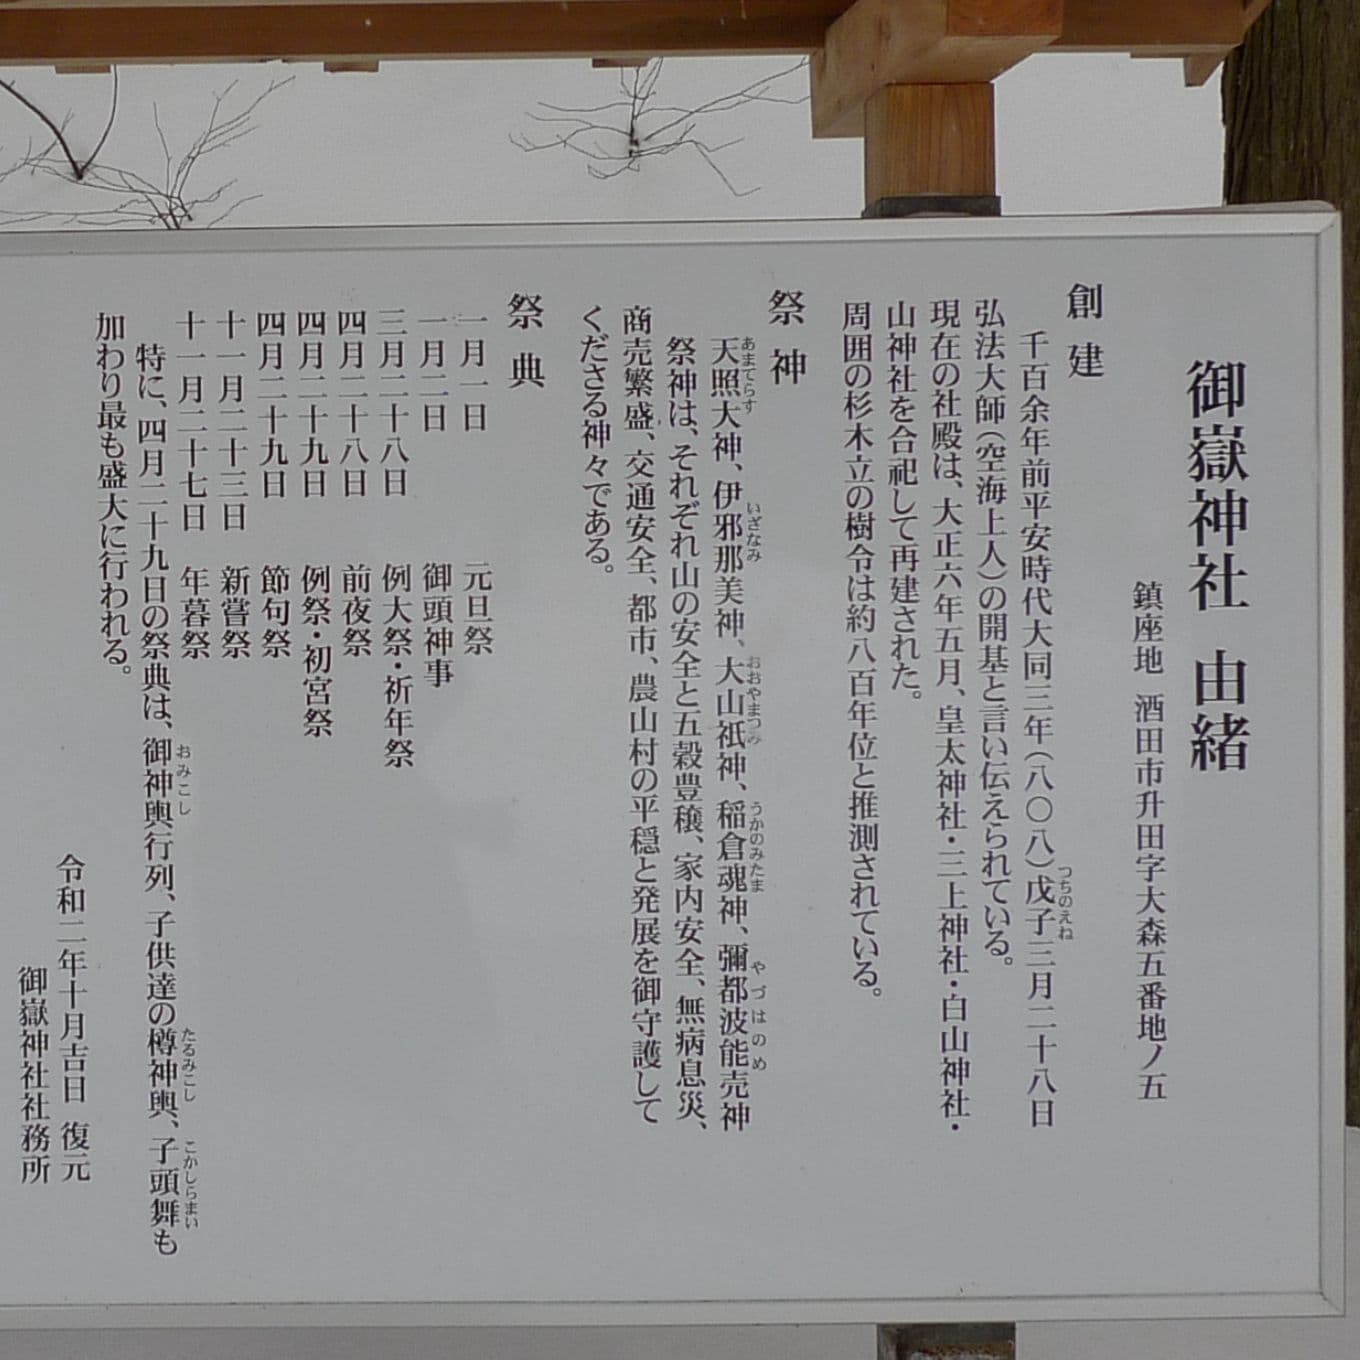 御嶽神社 由緒
鎮座地 酒田市升田字大森五番地ノ五
創建
千百余年前平安時代大同三年(八〇八)戊子三月二十八日
つちのえね
弘法大師(空海上人)の開基と言い伝えられている。
現在の社殿は、大正六年五月、皇太神社・三上神社・白山神社・
山神社を合祀して再建された。
周囲の杉木立の樹令は約八百年位と推測されている。
祭神
天照大神、伊邪那美神、大山祇神、稲倉魂神、彌都波能売神
あまてらす いざなみ おおやまつみ うかのみたま やづはのめ
祭神は、それぞれ山の安全と五穀豊穣、家内安全、無病息災、
商売繁盛、交通安全、都市、農山村の平穏と発展を御守護して
くださる神々である。
祭典
一月一日 元旦祭
一月二日 御頭神事
三月二十八日 例大祭・祈年祭
四月二十八日 前夜祭
四月二十九日 例祭・初宮祭
四月二十九日 節句祭
十一月二十三日 新嘗祭
十一月二十七日 年暮祭
特に、四月二十九日の祭典は、御神輿行列、子供達の樽神輿、子頭舞も
おみこし たるみこし こかしらまい
加わり最も盛大に行われる。
令和二年十月吉日 復元
御嶽神社社務所